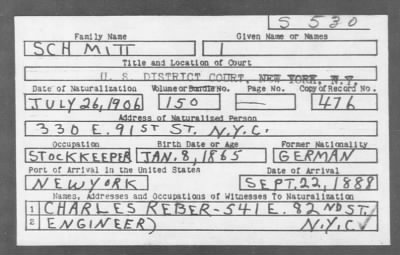 S 530
Family Name Given Name or Names
SCHMITT I
Title and Location of Court
U. S. DISTRICT COURT, NEW YORK, N.Y.
Date of Naturalization Volume or Bundle No. Page No. Copy of Record No.
JULY 26, 1906 150 — 476
Address of Naturalized Person
330 E. 91ST ST. N.Y.C.
Occupation Birth Date or Age Former Nationality
STOCKKEEPER JAN. 8, 1865 GERMAN
Port of Arrival in the United States Date of Arrival
NEW YORK SEPT. 22, 1888
Names, Addresses and Occupations of Witnesses To Naturalization
1 CHARLES REBER - 541 E. 82ND ST.
2 ENGINEER) N.Y.C.